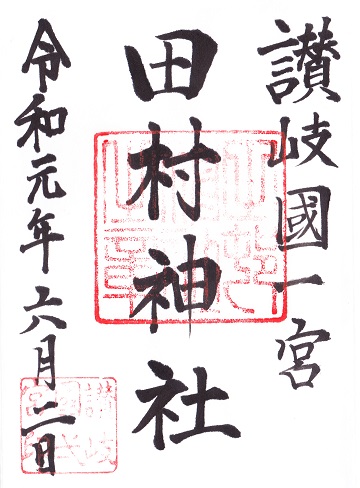 讃岐國一宮
田村神社
令和元年六月二日